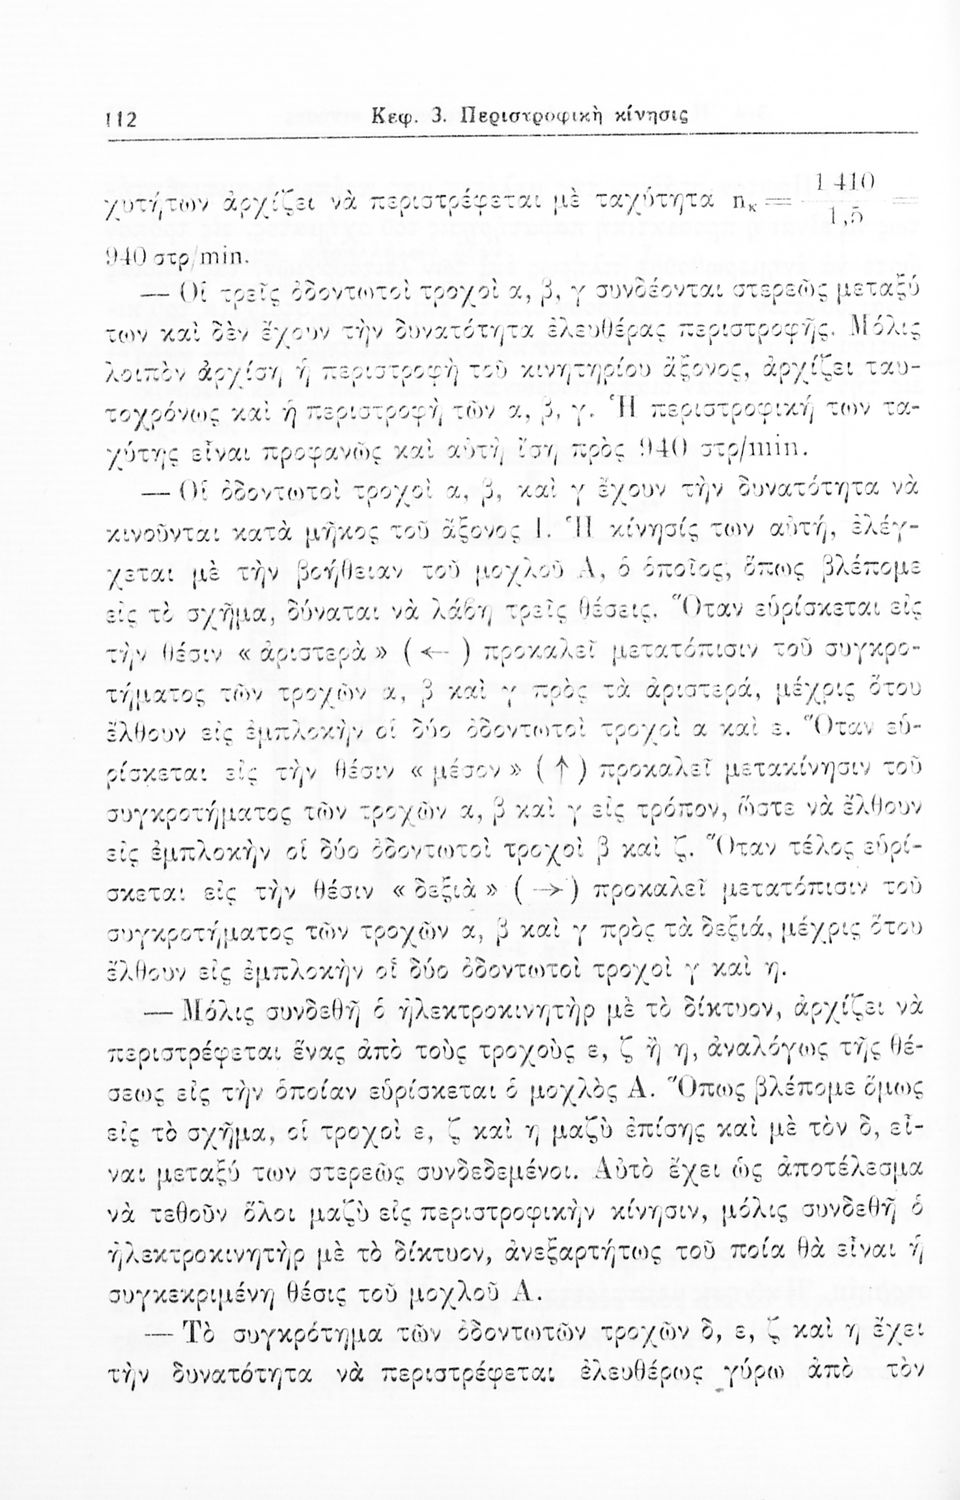 112 Κεφ. 3. Περιστροφικὴ κίνησις
χυτήτων ἀρχίζει νὰ περιστρέφεται μὲ ταχύτητα nκ = 1 410 / 1,5 =
940 στρ/min.
— Οἱ τρεῖς ὀδοντωτοὶ τροχοὶ α, β, γ συνδέονται στερεῶς μεταξύ
των καὶ δὲν ἔχουν τὴν δυνατότητα ἐλευθέρας περιστροφῆς. Μόλις
λοιπὸν ἀρχίσῃ ἡ περιστροφὴ τοῦ κινητηρίου ἄξονος, ἀρχίζει ταυ-
τοχρόνως καὶ ἡ περιστροφὴ τῶν α, β, γ. Ἡ περιστροφική των τα-
χύτης εἶναι προφανῶς καὶ αὐτὴ ἴση πρὸς 940 στρ/min.
— Οἱ ὀδοντωτοὶ τροχοὶ α, β, καὶ γ ἔχουν τὴν δυνατότητα νὰ
κινοῦνται κατὰ μῆκος τοῦ ἄξονος Ι. Ἡ κίνησίς των αὐτή, ἐλέγ-
χεται μὲ τὴν βοήθειαν τοῦ μοχλοῦ Α, ὁ ὁποῖος, ὅπως βλέπομε
εἰς τὸ σχῆμα, δύναται νὰ λάβῃ τρεῖς θέσεις. Ὅταν εὑρίσκεται εἰς
τὴν θέσιν « ἀριστερὰ » ( ← ) προκαλεῖ μετατόπισιν τοῦ συγκρο-
τήματος τῶν τροχῶν α, β καὶ γ πρὸς τὰ ἀριστερά, μέχρις ὅτου
ἔλθουν εἰς ἐμπλοκὴν οἱ δύο ὀδοντωτοὶ τροχοὶ α καὶ ε. Ὅταν εὑ-
ρίσκεται εἰς τὴν θέσιν « μέσον » ( ↑ ) προκαλεῖ μετακίνησιν τοῦ
συγκροτήματος τῶν τροχῶν α, β καὶ γ εἰς τρόπον, ὥστε νὰ ἔλθουν
εἰς ἐμπλοκὴν οἱ δύο ὀδοντωτοὶ τροχοὶ β καὶ ζ. Ὅταν τέλος εὑρί-
σκεται εἰς τὴν θέσιν « δεξιὰ » ( → ) προκαλεῖ μετατόπισιν τοῦ
συγκροτήματος τῶν τροχῶν α, β καὶ γ πρὸς τὰ δεξιά, μέχρις ὅτου
ἔλθουν εἰς ἐμπλοκὴν οἱ δύο ὀδοντωτοὶ τροχοὶ γ καὶ η.
— Μόλις συνδεθῇ ὁ ἠλεκτροκινητὴρ μὲ τὸ δίκτυον, ἀρχίζει νὰ
περιστρέφεται ἕνας ἀπὸ τοὺς τροχοὺς ε, ζ ἢ η, ἀναλόγως τῆς θέ-
σεως εἰς τὴν ὁποίαν εὑρίσκεται ὁ μοχλὸς Α. Ὅπως βλέπομε ὅμως
εἰς τὸ σχῆμα, οἱ τροχοὶ ε, ζ καὶ η μαζὺ ἐπίσης καὶ μὲ τὸν δ, εἶ-
ναι μεταξύ των στερεῶς συνδεδεμένοι. Αὐτὸ ἔχει ὡς ἀποτέλεσμα
νὰ τεθοῦν ὅλοι μαζὺ εἰς περιστροφικὴν κίνησιν, μόλις συνδεθῇ ὁ
ἠλεκτροκινητὴρ μὲ τὸ δίκτυον, ἀνεξαρτήτως τοῦ ποία θὰ εἶναι ἡ
συγκεκριμένη θέσις τοῦ μοχλοῦ Α.
— Τὸ συγκρότημα τῶν ὀδοντωτῶν τροχῶν δ, ε, ζ καὶ η ἔχει
τὴν δυνατότητα νὰ περιστρέφεται ἐλευθέρως γύρω ἀπὸ τὸν